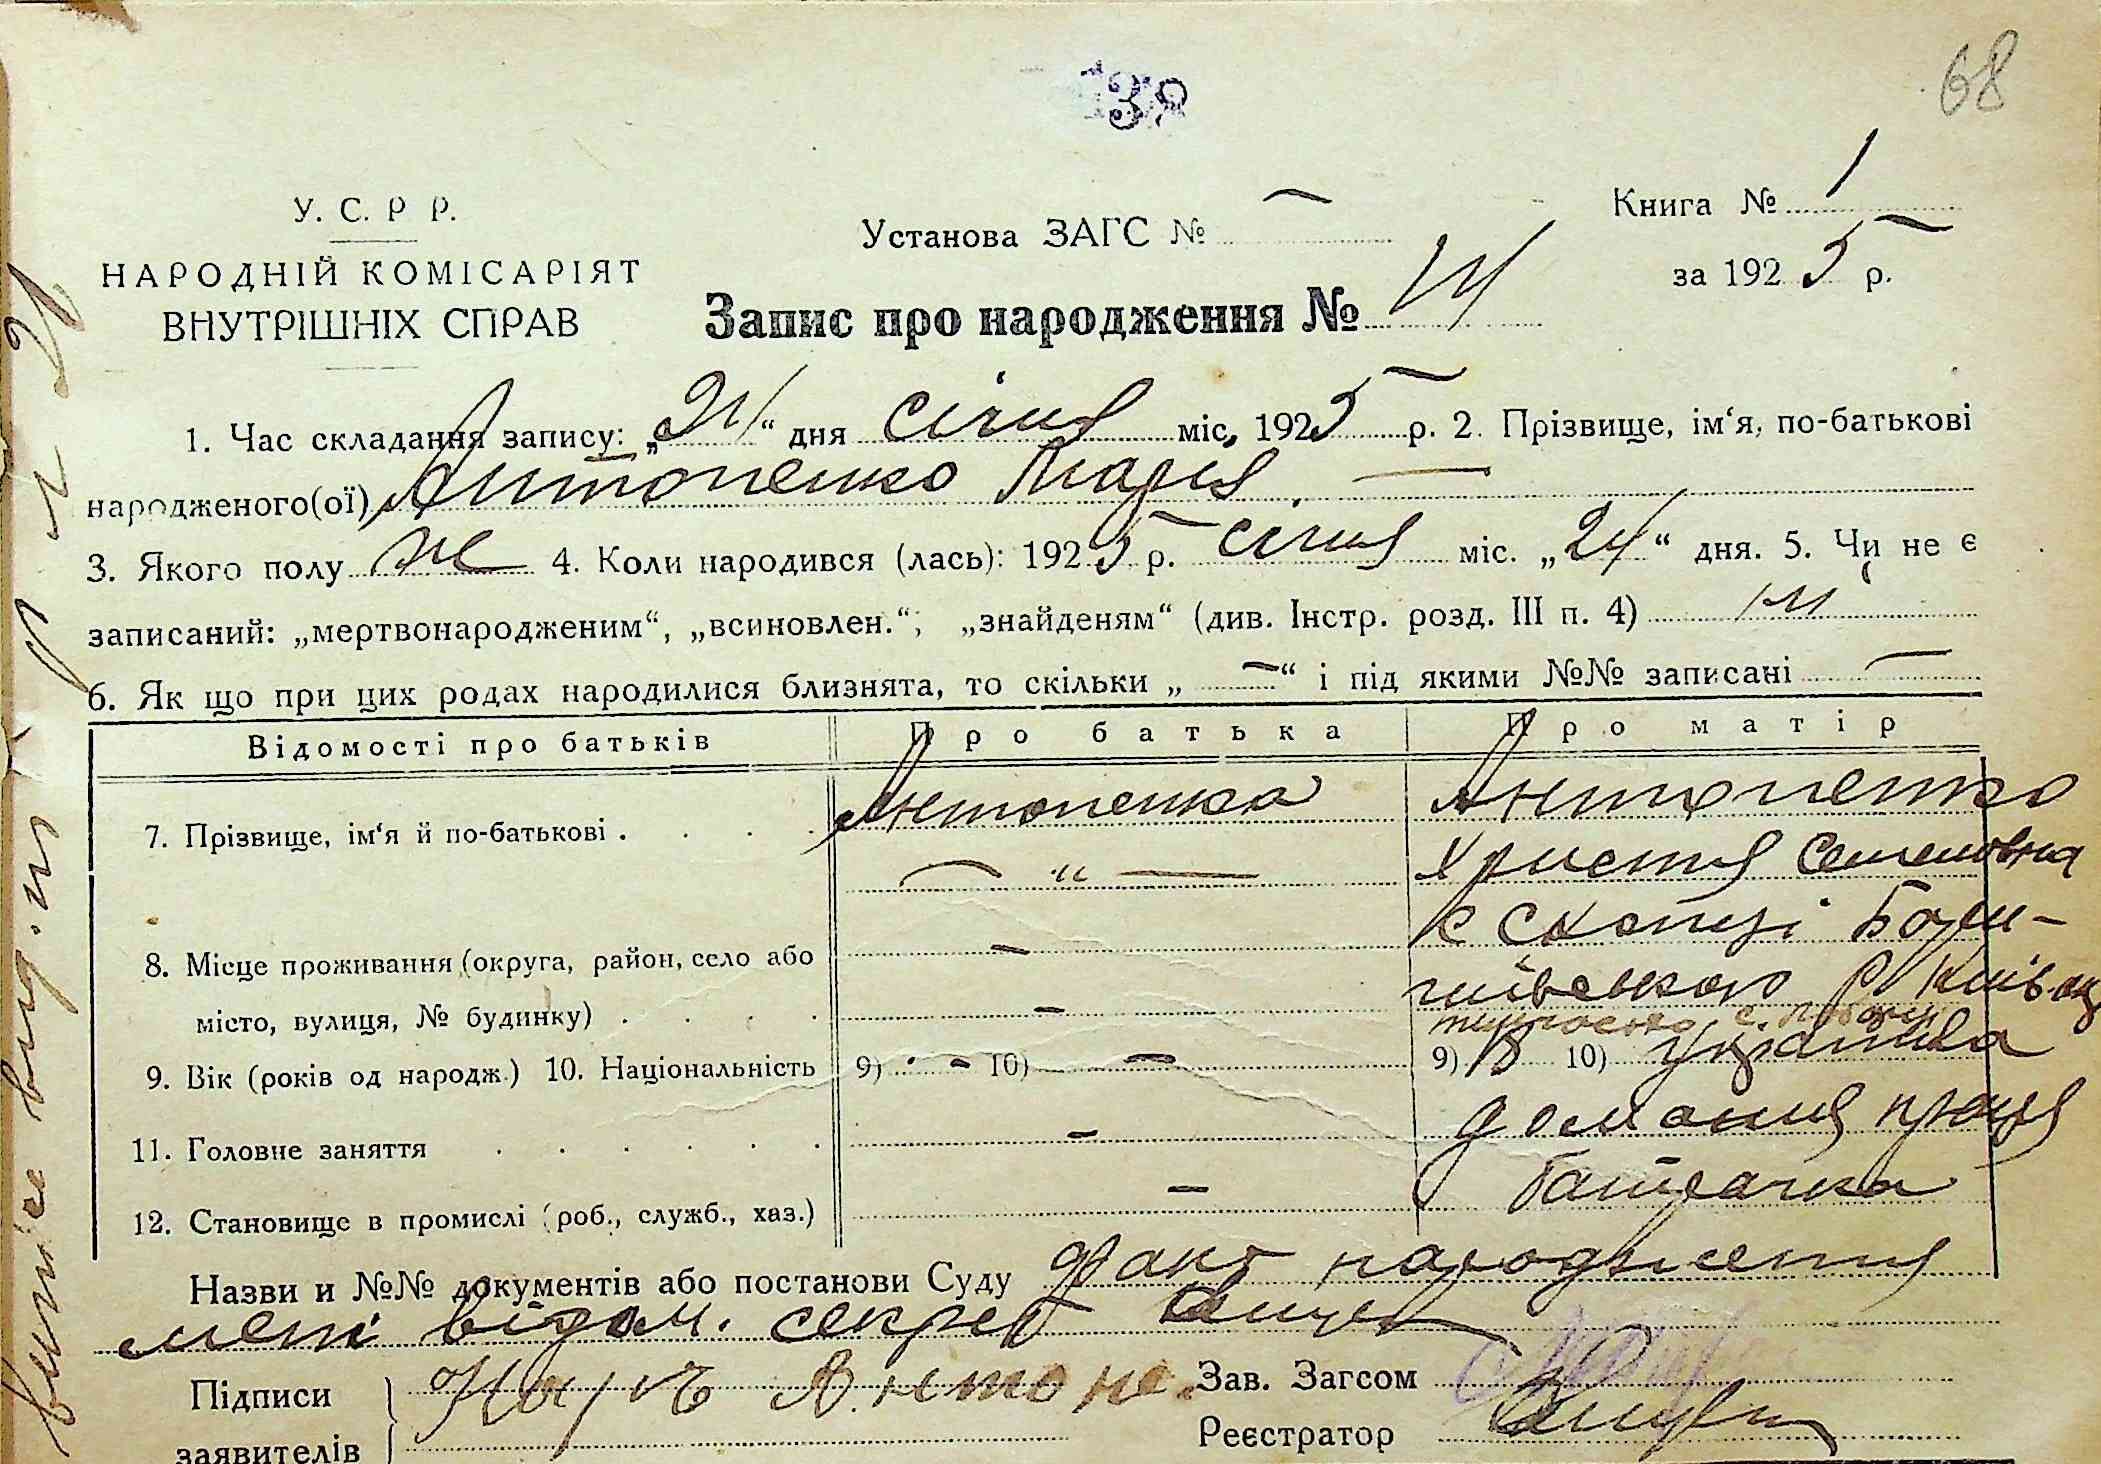 68
138
У. С. Р Р.
НАРОДНІЙ КОМІСАРІЯТ
ВНУТРІШНІХ СПРАВ
Установа ЗАГС № —
Книга № 1
за 1925 р.
Запис про народження №
1. Час складання запису: „24“ дня січня міс, 1925 р. 2. Прізвище, ім‘я, по-батькові
народженого(ої) Антоненко Марія —
3. Якого полу ж 4. Коли народився (лась): 1925 р. січня міс. „24“ дня. 5. Чи не є
записаний: „мертвонародженим“, „всиновлен.“; „знайденям“ (див. Інстр. розд. III п. 4) ні
6. Як що при цих родах народилися близнята, то скільки „ — “ і під якими №№ записані —
Відомості про батьків Про батька Про матір
7. Прізвище, ім‘я й по-батькові . Антоненка Антоненко
— „ — Христя Семеновна
8. Місце проживання (округа, район, село або — с
місто, вулиця, № будинку) —
9. Вік (років од народж.) 10. Національність 9) - 10) — 9) 18 10) українка
11. Головне заняття — домашня праця
12. Становище в промислі (роб., служб., хаз.) — батрачка
Назви и №№ документів або постанови Суду факт народження
мені відом. секрет
Підписи
заявителів
Антоне.
Зав. Загсом
Реєстратор